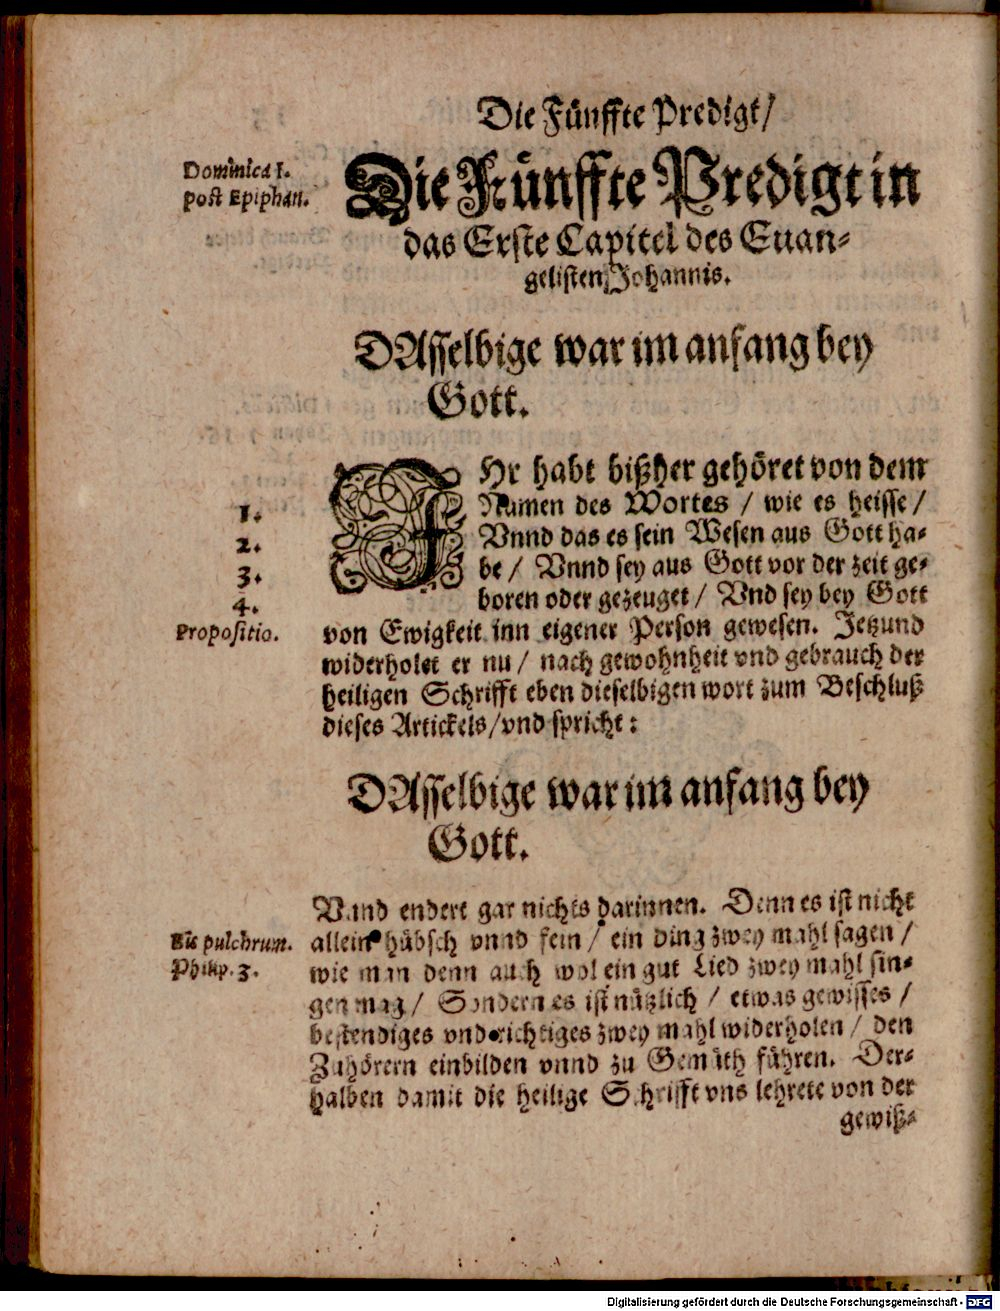 Die Fünffte Predigt/
Dominica 1.
post Epiphan.
Die Fünffte Predigt in
das Erste Capitel des Euan-
gelisten Johannis.
DAsselbige war im anfang bey
Gott.
IHr habt bißher gehöret von dem
1.
Namen des Wortes / wie es heisse /
2.
Vnnd das es sein Wesen aus Gott ha-
3.
be / Vnnd sey aus Gott vor der zeit ge-
4.
boren oder gezeuget / Vnd sey bey Gott
Propositio.
von Ewigkeit inn eigener Person gewesen. Jetzund
widerholet er nu / nach gewohnheit vnd gebrauch der
heiligen Schrifft eben dieselbigen wort zum Beschluß
dieses Artickels/vnd spricht:
DAsselbige war im anfang bey
Gott.
Vnnd endert gar nichts darinnen. Denn es ist nicht
Bis pulchrum.
allein hübsch vnnd fein / ein ding zwey mahl sagen /
Philip. 3.
wie man denn auch wol ein gut Lied zwey mahl sin-
gen mag / Sondern es ist nützlich / etwas gewisses /
bestendiges vnd richtiges zwey mahl widerholen / den
Zuhörern einbilden vnnd zu Gemüth führen. Der-
halben damit die heilige Schrifft vns lehrete von der
gewiß-
Digitalisierung gefördert durch die Deutsche Forschungsgemeinschaft - DFG